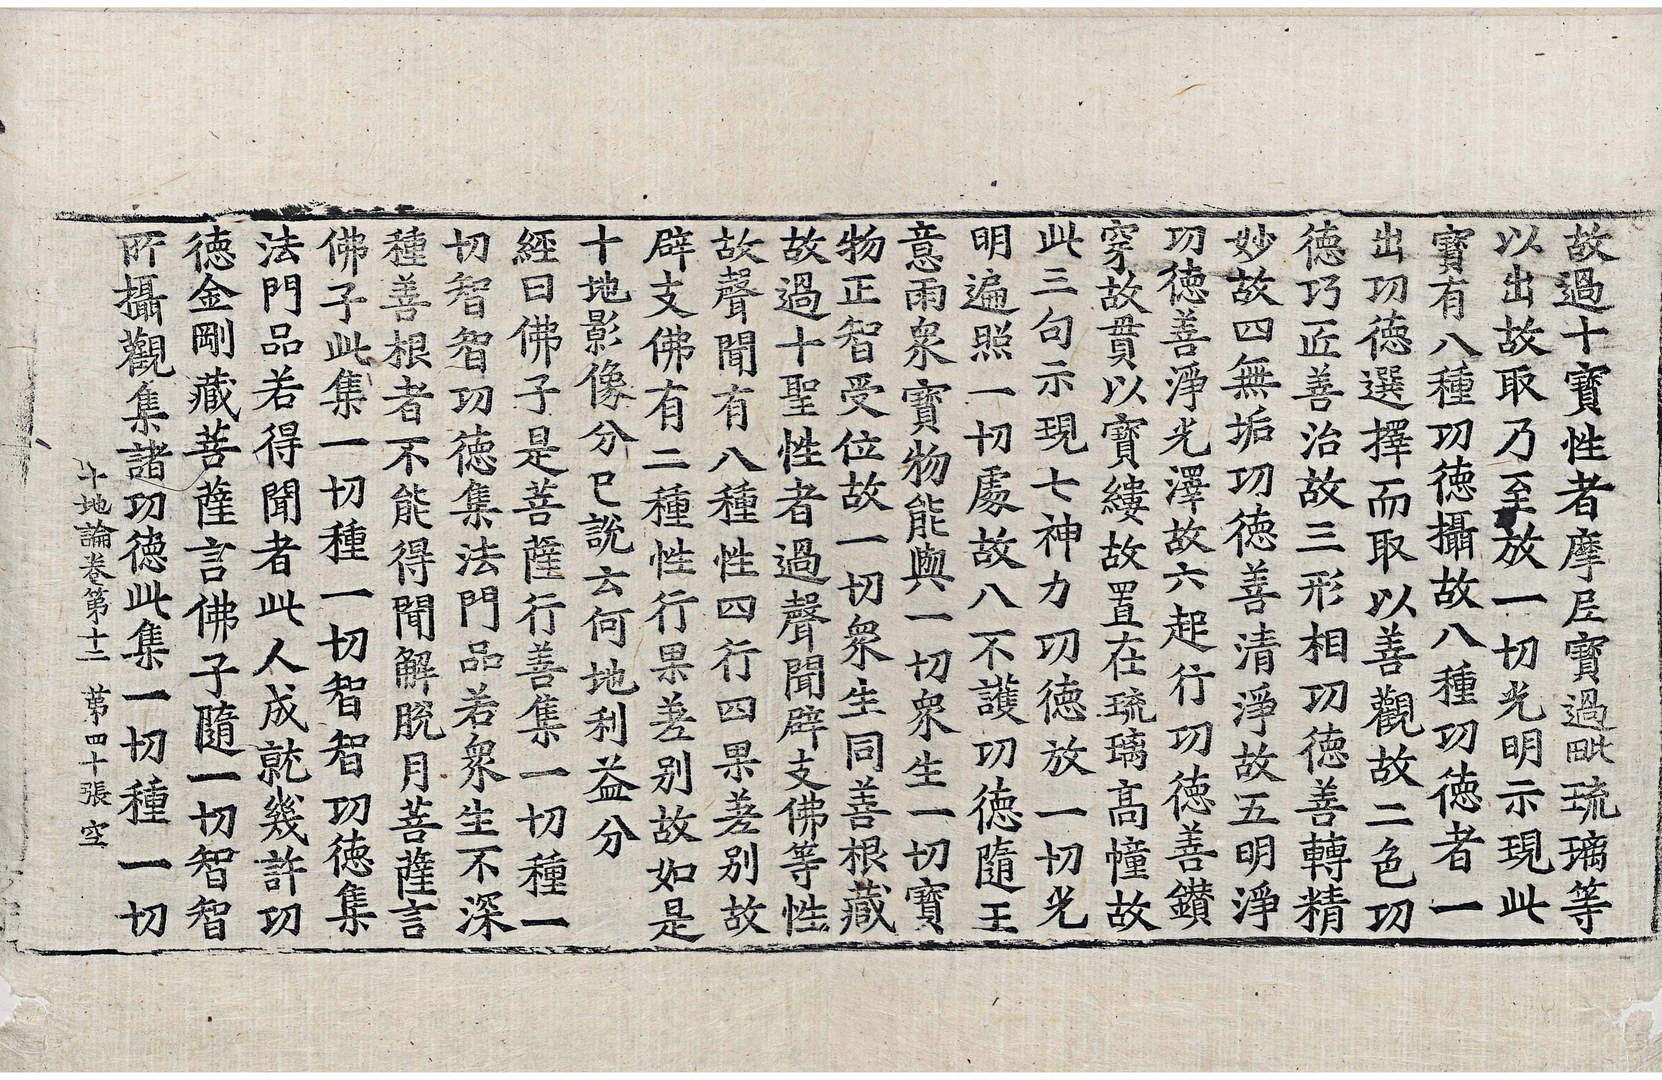 故過十寶性者摩㞐寶過毗琉璃等
以出故取乃至放一切光明示現此
寶有八種功德攝故八種功德者一
出功德選擇而取以善觀故二色功
德巧匠善治故三形相功德善轉精
妙故四無垢功德善清淨故五明淨
功德善淨光澤故六起行功德善鑚
穿故貫以寶縷故置在琉璃高幢故
此三句示現七神力功德放一切光
明遍照一切處故八不護功德隨王
意雨衆寶物能與一切衆生一切寶
物正智受位故一切衆生同善根藏
故過十聖性者過聲聞辟支佛等性
故聲聞有八種性四行四果差別故
辟支佛有二種性行果差別故如是
十地影像分已說云何地利益分
經曰佛子是菩薩行善集一切種一
切智智功德集法門品若衆生不深
種善根者不能得聞解脫月菩薩言
佛子此集一切種一切智智功德集
法門品若得聞者此人成就幾許功
德金剛藏菩薩言佛子隨一切智智
所攝觀集諸功德此集一切種一切
十地論卷第十二 第四十張 空